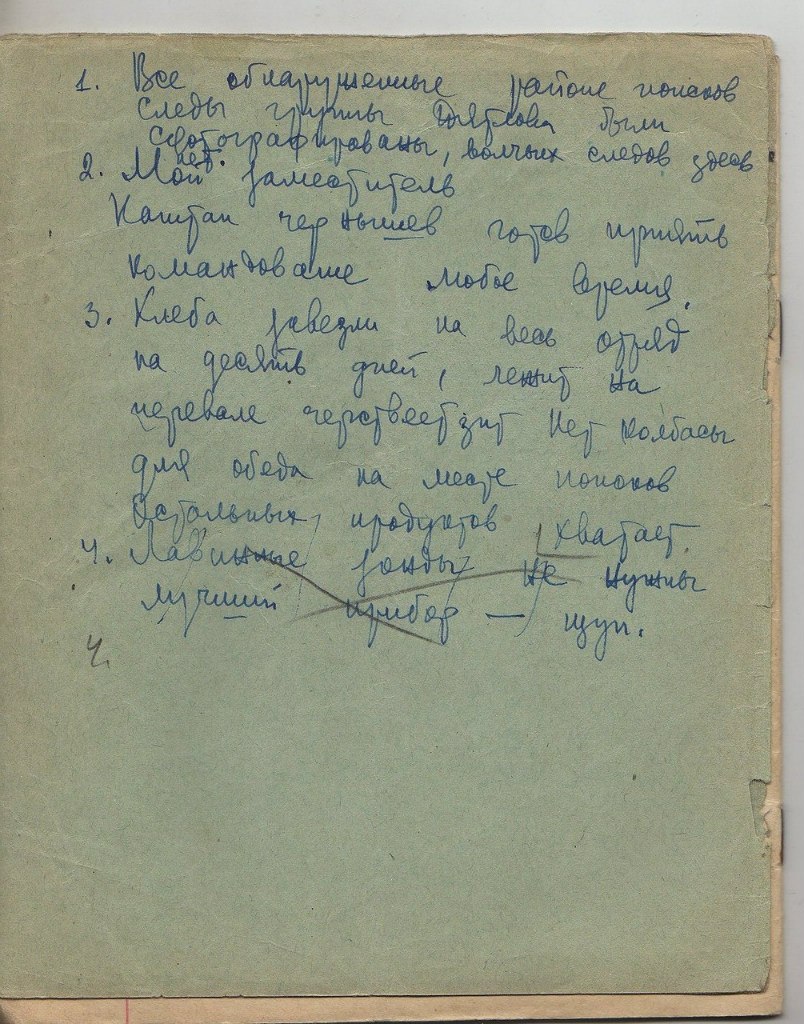 1. Все обнаруженные районе поисков
следы группы Дятлова были
сфотографированы, волчьих следов здесь
нет.
2. Мой заместитель
Капитан чернышев готов принять
командование любое время.
3. Хлеба завезли на весь отряд
на десять дней, лежит на
перевале черствеет зпт Нет колбасы
для обеда на месте поисков
Остальных продуктов хватает.
4. Лавинные зонды не нужны
лучший прибор — щуп.
4.